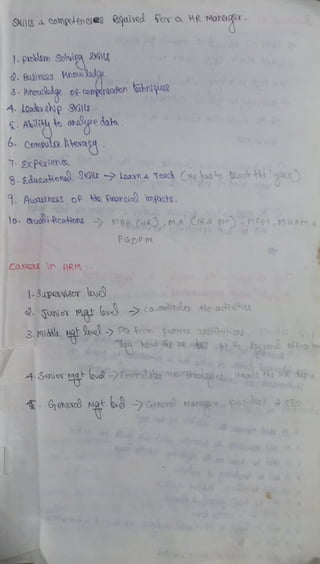 Skills & competencies Required for a HR Manager.
1. problem Solving skills
2. Business Knowledge
3. Knowledge of compensation techniques
4. Leadership Skills.
5. Ability to analyze data.
6. Computer literacy
7. Experience.
8. Educational Skills → Learn & Teach (He has to teach the
9. Awareness of the financial impacts.
10. Qualifications → MBA (HR), M.A
PGDPM
Careers in HRM :-
1. Supervisor level
2. Junior Mgt level → co-ordinates the activities
3. Middle Mgt level →
4. Senior Mgt level → Formulates
5. General Mgt level → General Manager, President & CEO